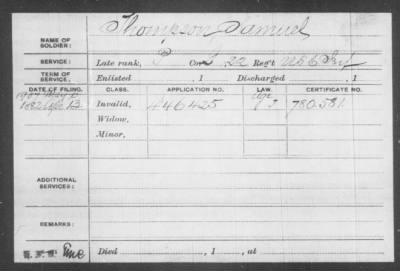 NAME OF SOLDIER: Thompson Samuel
SERVICE: Late rank, P Co. 22 Reg't U S C Inf
TERM OF SERVICE. Enlisted , 1 Discharged , 1
DATE OF FILING. CLASS. APPLICATION NO. LAW. CERTIFICATE NO.
1907 May
1882 13 Invalid, 446425 780.581
Widow,
Minor,
ADDITIONAL SERVICES:
REMARKS:
Died , 1 , at